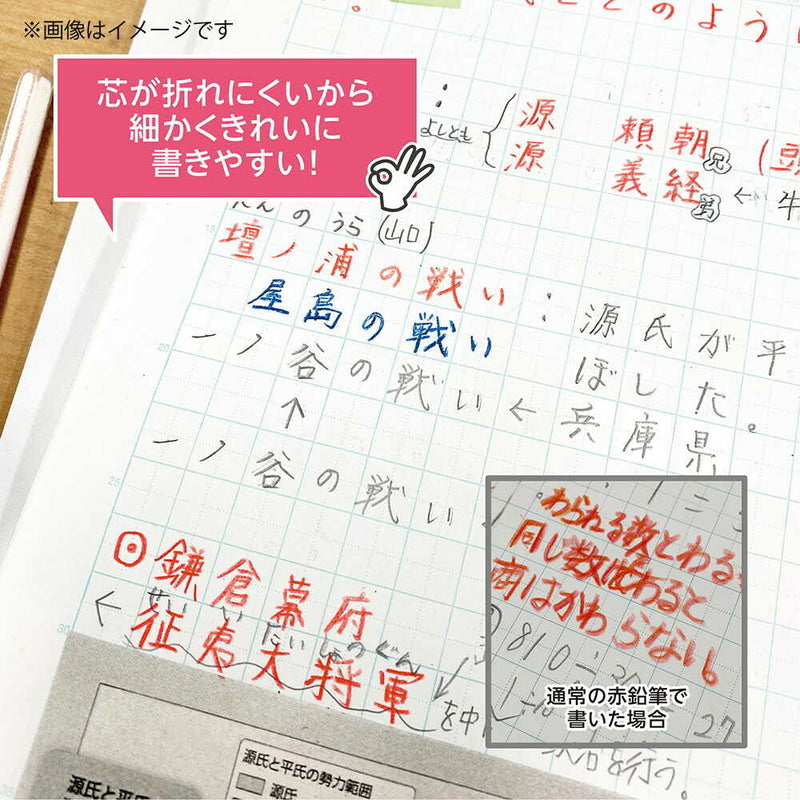 ※画像はイメージです
どのように
芯が折れにくいから
細かくきれいに
書きやすい!
よしとも
源 頼朝 兄 (頭
源 義経 弟 ← 牛
だんのうら(山口)
壇ノ浦の戦い：源氏が平
屋島の戦い ぼした。
一ノ谷の戦い←兵庫県
↑
一ノ谷の戦い
15
20
25
30
35
⊙鎌倉幕府
せいいたいしょうぐん
←征夷大将軍
を中
わられる数とわる
同じ数でわると
商はかわらない。
810÷30
27
通常の赤鉛筆で
書いた場合
を行う。
源氏と平氏の勢力範囲
源氏
源氏と平氏